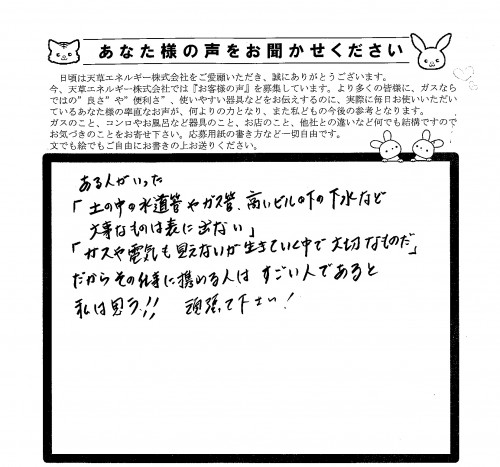 あなた様の声をお聞かせください
日頃は天草エネルギー株式会社をご愛顧いただき、誠にありがとうございます。
今、天草エネルギー株式会社では『お客様の声』を募集しています。より多くの皆様に、ガスなら
ではの”良さ”や”便利さ”、使いやすい器具などをお伝えするのに、実際に毎日お使いいただい
ているあなた様の率直なお声が、何よりの力となり、また私どもの今後の参考となります。
ガスのこと、コンロやお風呂など器具のこと、お店のこと、他社との違いなど何でも結構ですので
お気づきのことをお寄せ下さい。応募用紙の書き方など一切自由です。
文でも絵でもご自由にお書きの上お送りください。
ある人がいった
「土の中の水道管やガス管、高いビルの下の下水など
大事なものは表に出ない」
「ガスや電気も見えないが生きていく中で大切なものだ」
だからその仕事に携める人は すごい人であると
私は思う!! 頑張って下さい!